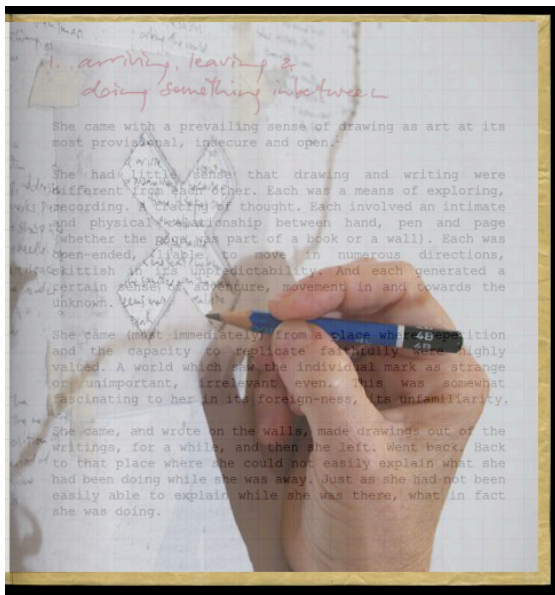 1. arriving, leaving &
doing something inbetween
She came with a prevailing sense of drawing as art at its
most provisional, insecure and open.
She had little sense that drawing and writing were
different from each other. Each was a means of exploring,
recording. A tracing of thought. Each involved an intimate
and physical relationship between hand, pen and page
(whether the page was part of a book or a wall). Each was
open-ended, liable to move in numerous directions,
skittish in its unpredictability. And each generated a
certain sense of adventure, movement in and towards the
unknown.
She came (most immediately) from a place where repetition
and the capacity to replicate faithfully were highly
valued. A world which saw the individual mark as strange
or unimportant, irrelevant even. This was somewhat
fascinating to her in its foreign-ness, its unfamiliarity.
She came, and wrote on the walls, made drawings out of the
writings, for a while, and then she left. Went back. Back
to that place where she could not easily explain what she
had been doing while she was away. Just as she had not been
easily able to explain while she was there, what in fact
she was doing.
4B
4B